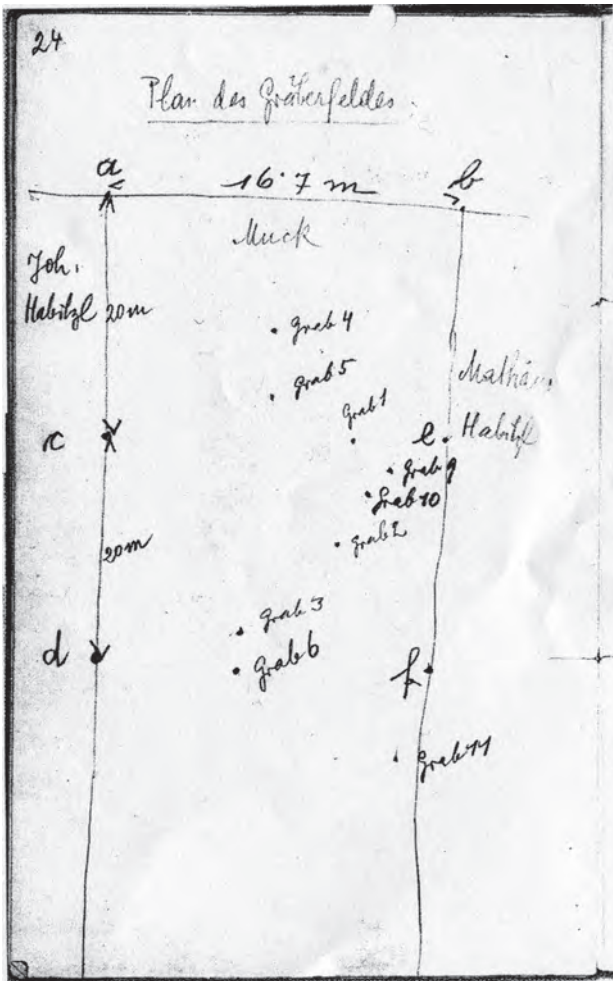 24
Plan des Gräberfeldes
a 16·7 m b
Muck
Joh.
Habitzl 20m
Grab 4
Grab 5
Mathäus
Grab 1
c e Habitzl
Grab 9
Grab 10
20m Grab 2
Grab 3
d Grab 6 f
Grab 11